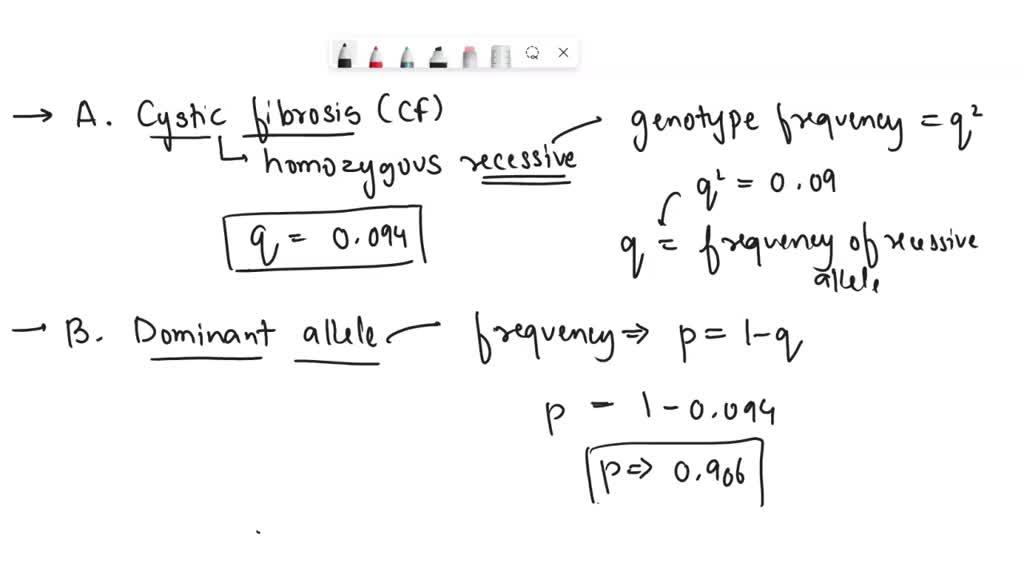 → A. Cystic fibrosis (CF)
↳ homozygous recessive
q = 0.094
genotype frequency = q²
q² = 0.09
q = frequency of recessive
allele
→ B. Dominant allele
frequency ⇒ p = 1-q
p = 1 - 0.094
p ⇒ 0.906